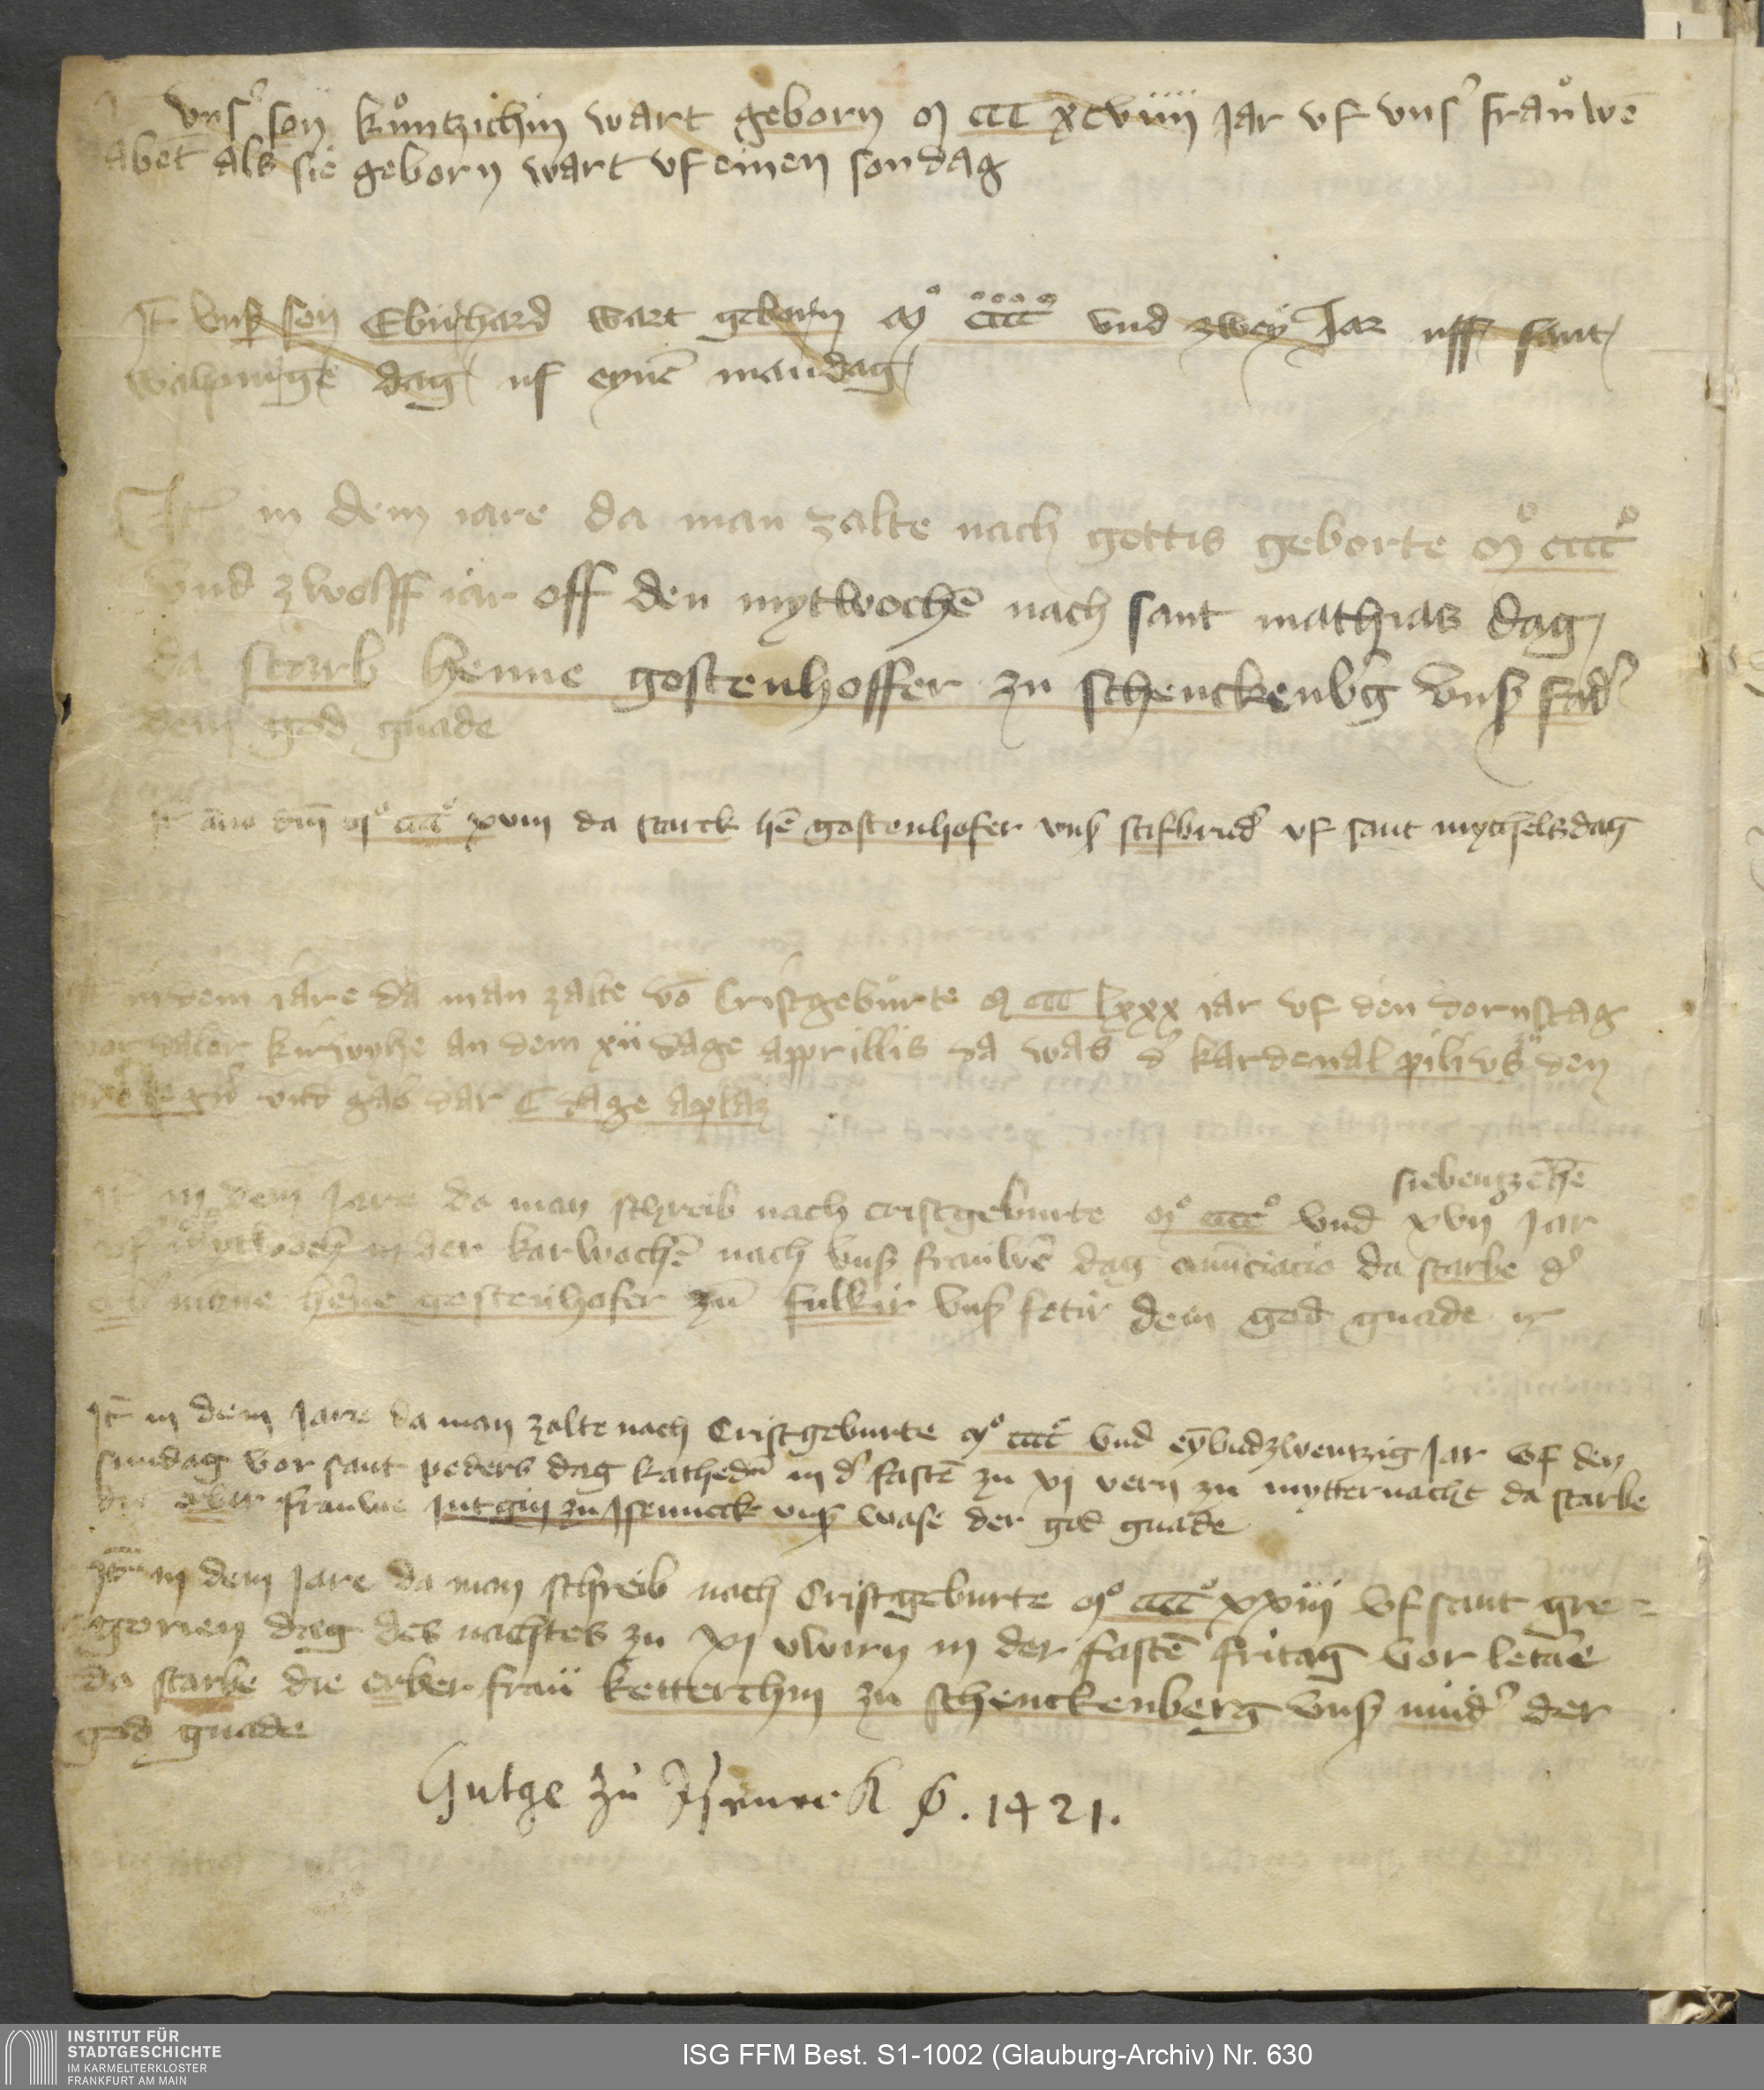 vnsʼ son kuͦntzichin wart geborn M ccc xcviiii Jar vf vnsʼ frauͦwē
abēt als sie geborn wart vf einen sondag
It̄ vnß son Ebirhard wart geborn Mͦ cccc vnd zwey Jar uff sant
walpurge dag uf eynē mandag
It̄ in dem iare da man zalte nach gottis geborte Mͦ ccccͦ
vnd zwolff iar off den mytwochē nach sant mathias dag
da starb henne gostenhoffer zu schenckenbʼg vnß fadʼ
dem god gnade
It̄ āno dm̄ Mͦ ccccͦ xviii da starck hē gostenhofer vnß stifbrudʼ vf sant mychelsdag
indem iare da man zalte vō Cristgeburte M ccc lxxx iar vf den dornstag
vor kirwyhe an dem xii dage apprillis da was dʼ kardenal pilivs den
vnd gab dar C dage aplaz
It̄ in dem Jare da man schreib nach cristgeburte Mͦ ccccͦ vnd xvii Jar
siebenzēhē
in der karwochē nach vnß frauwē dag anūciacio da starbe dʼ
hene gostenhofer zū fulkir vnß fetir dem god gnade
It̄ in dem Jare da man zalte nach Cristgeburte Mͦ ccccͦ vnd eȳvndzwentzig Jar vf den
sundag vor sant peders dag kathedʼ in dʼ fastē zu xi vern zu mytternacht da starbe
die erbir frauwe Jutgin zu Jsenneck vnß wase der god gnade
in dem Jare da man schreib nach Cristgeburte Mͦ ccccͦ xxiiii vf sant gre-
gorien dag des nachtes zu xi vwirn in der fastē fritag vor letāre
da starbe die erber frau ketterchin zu schenckenberg vnß mudʼ der
god gnade
Gutge zu Jsenneck 1421.
INSTITUT FÜR
STADTGESCHICHTE
IM KARMELITERKLOSTER
FRANKFURT AM MAIN
ISG FFM Best. S1-1002 (Glauburg-Archiv) Nr. 630